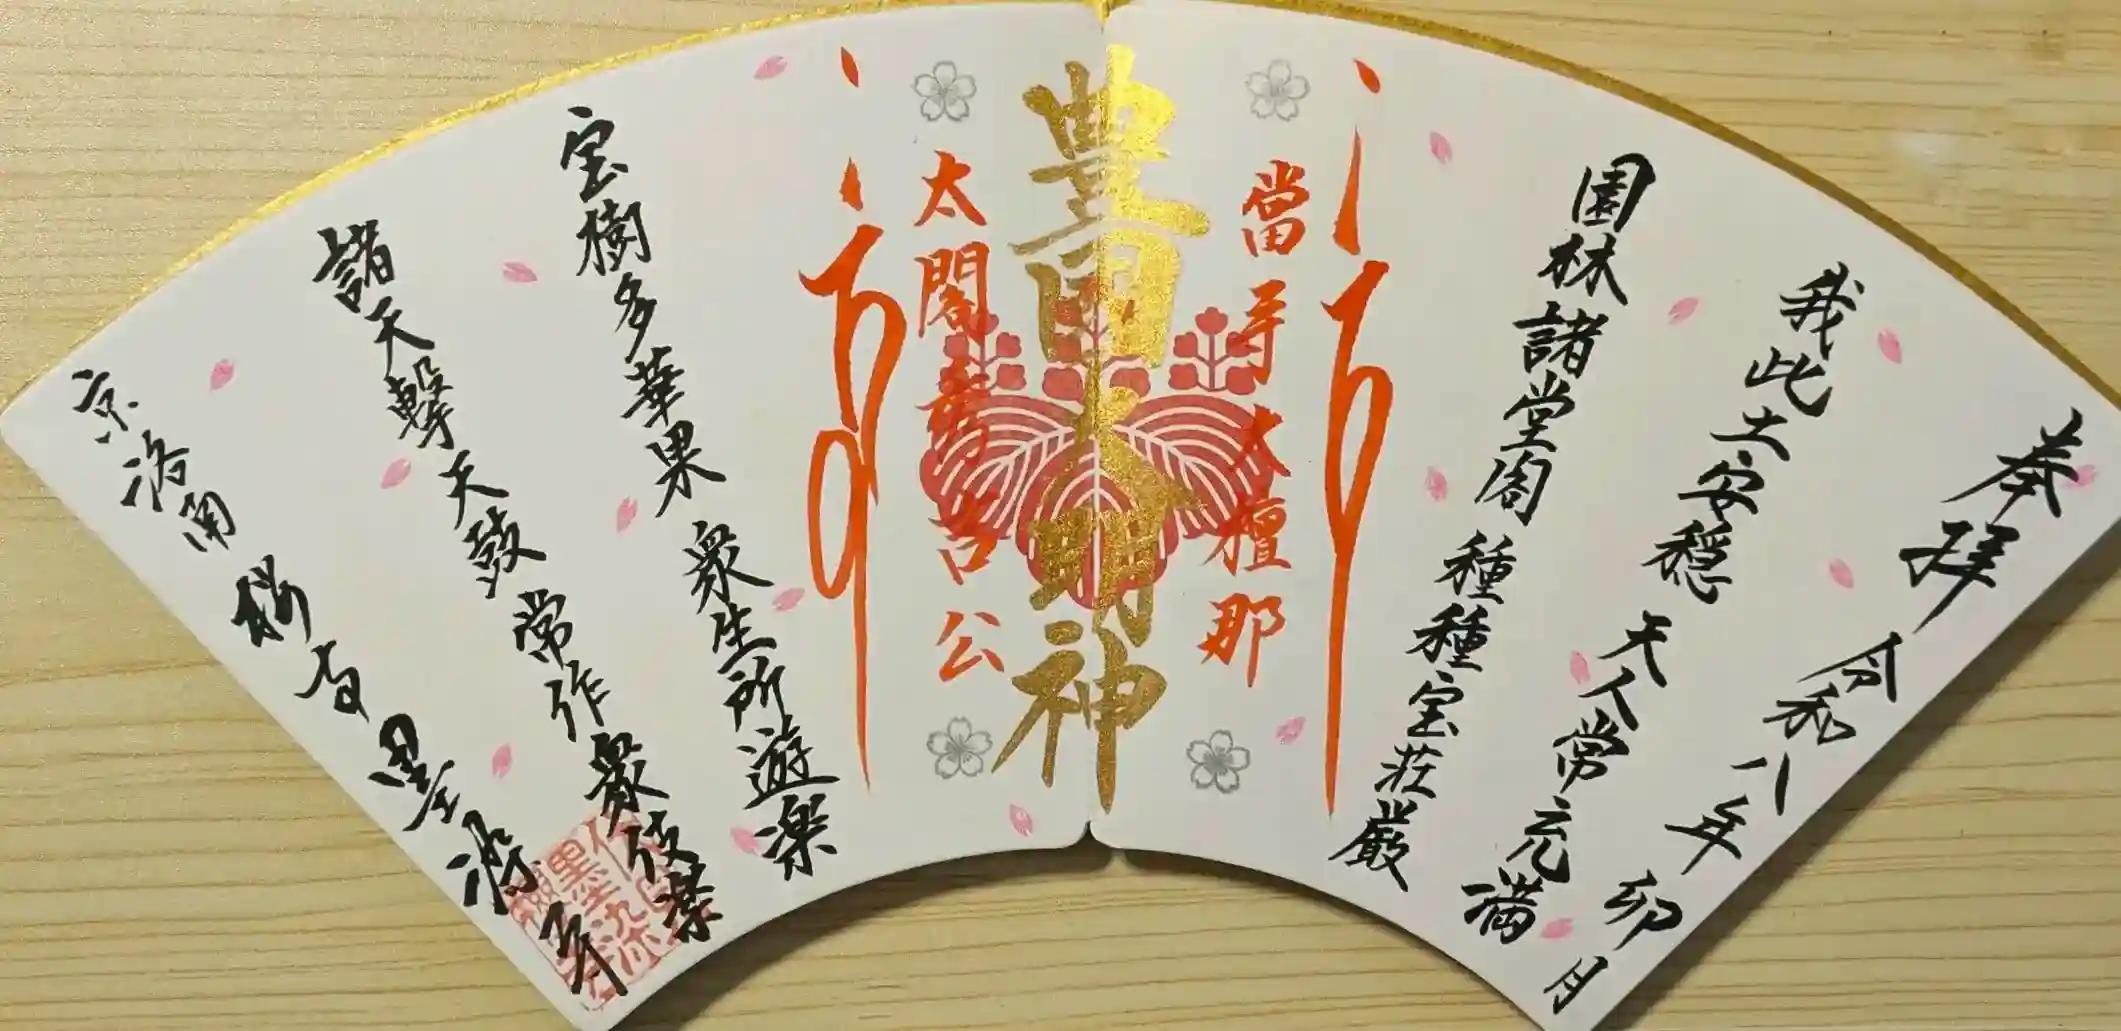 奉拝 令和八年卯月
我此土安穏 天人常充満
園林諸堂閣 種種宝荘厳
當寺大檀那
豊国大明神
太閤秀吉公
宝樹多華果 衆生所遊楽
諸天撃天鼓 常作衆伎楽
京洛南 桜寺 墨染寺